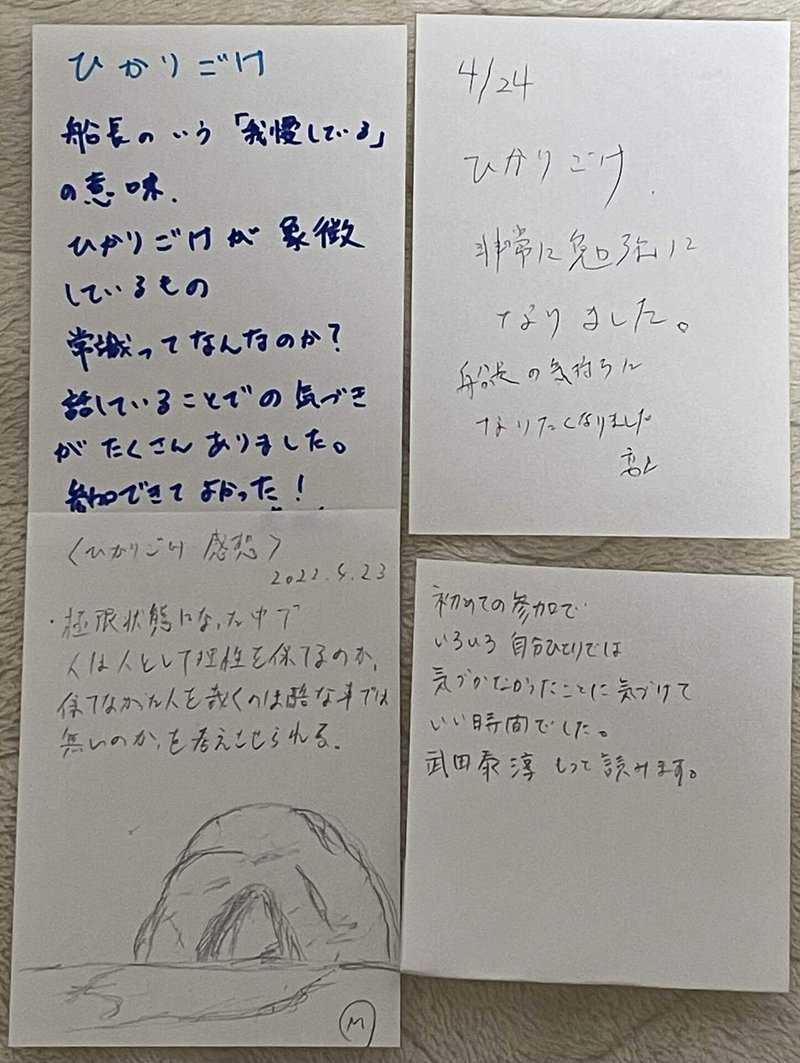 ひかりごけ
船長のいう「我慢している」
の意味.
ひかりごけが象徴
しているもの
常識ってなんなのか?
話していることでの気づき
がたくさんありました。
参加できてよかった!
〈ひかりごけ 感想〉
2022.4.23
・極限状態になった中で
人は人として理性を保てるのか,
保てなかった人を裁くのは酷な事では
無いのか,を考えさせられる.
M
4/24
ひかりごけ.
非常に勉強に
なりました。
船長の気持ちに
なりたくなりました
初めての参加で
いろいろ自分ひとりでは
気づかなかったことに気づけて
いい時間でした。
武田泰淳 もっと読みます。